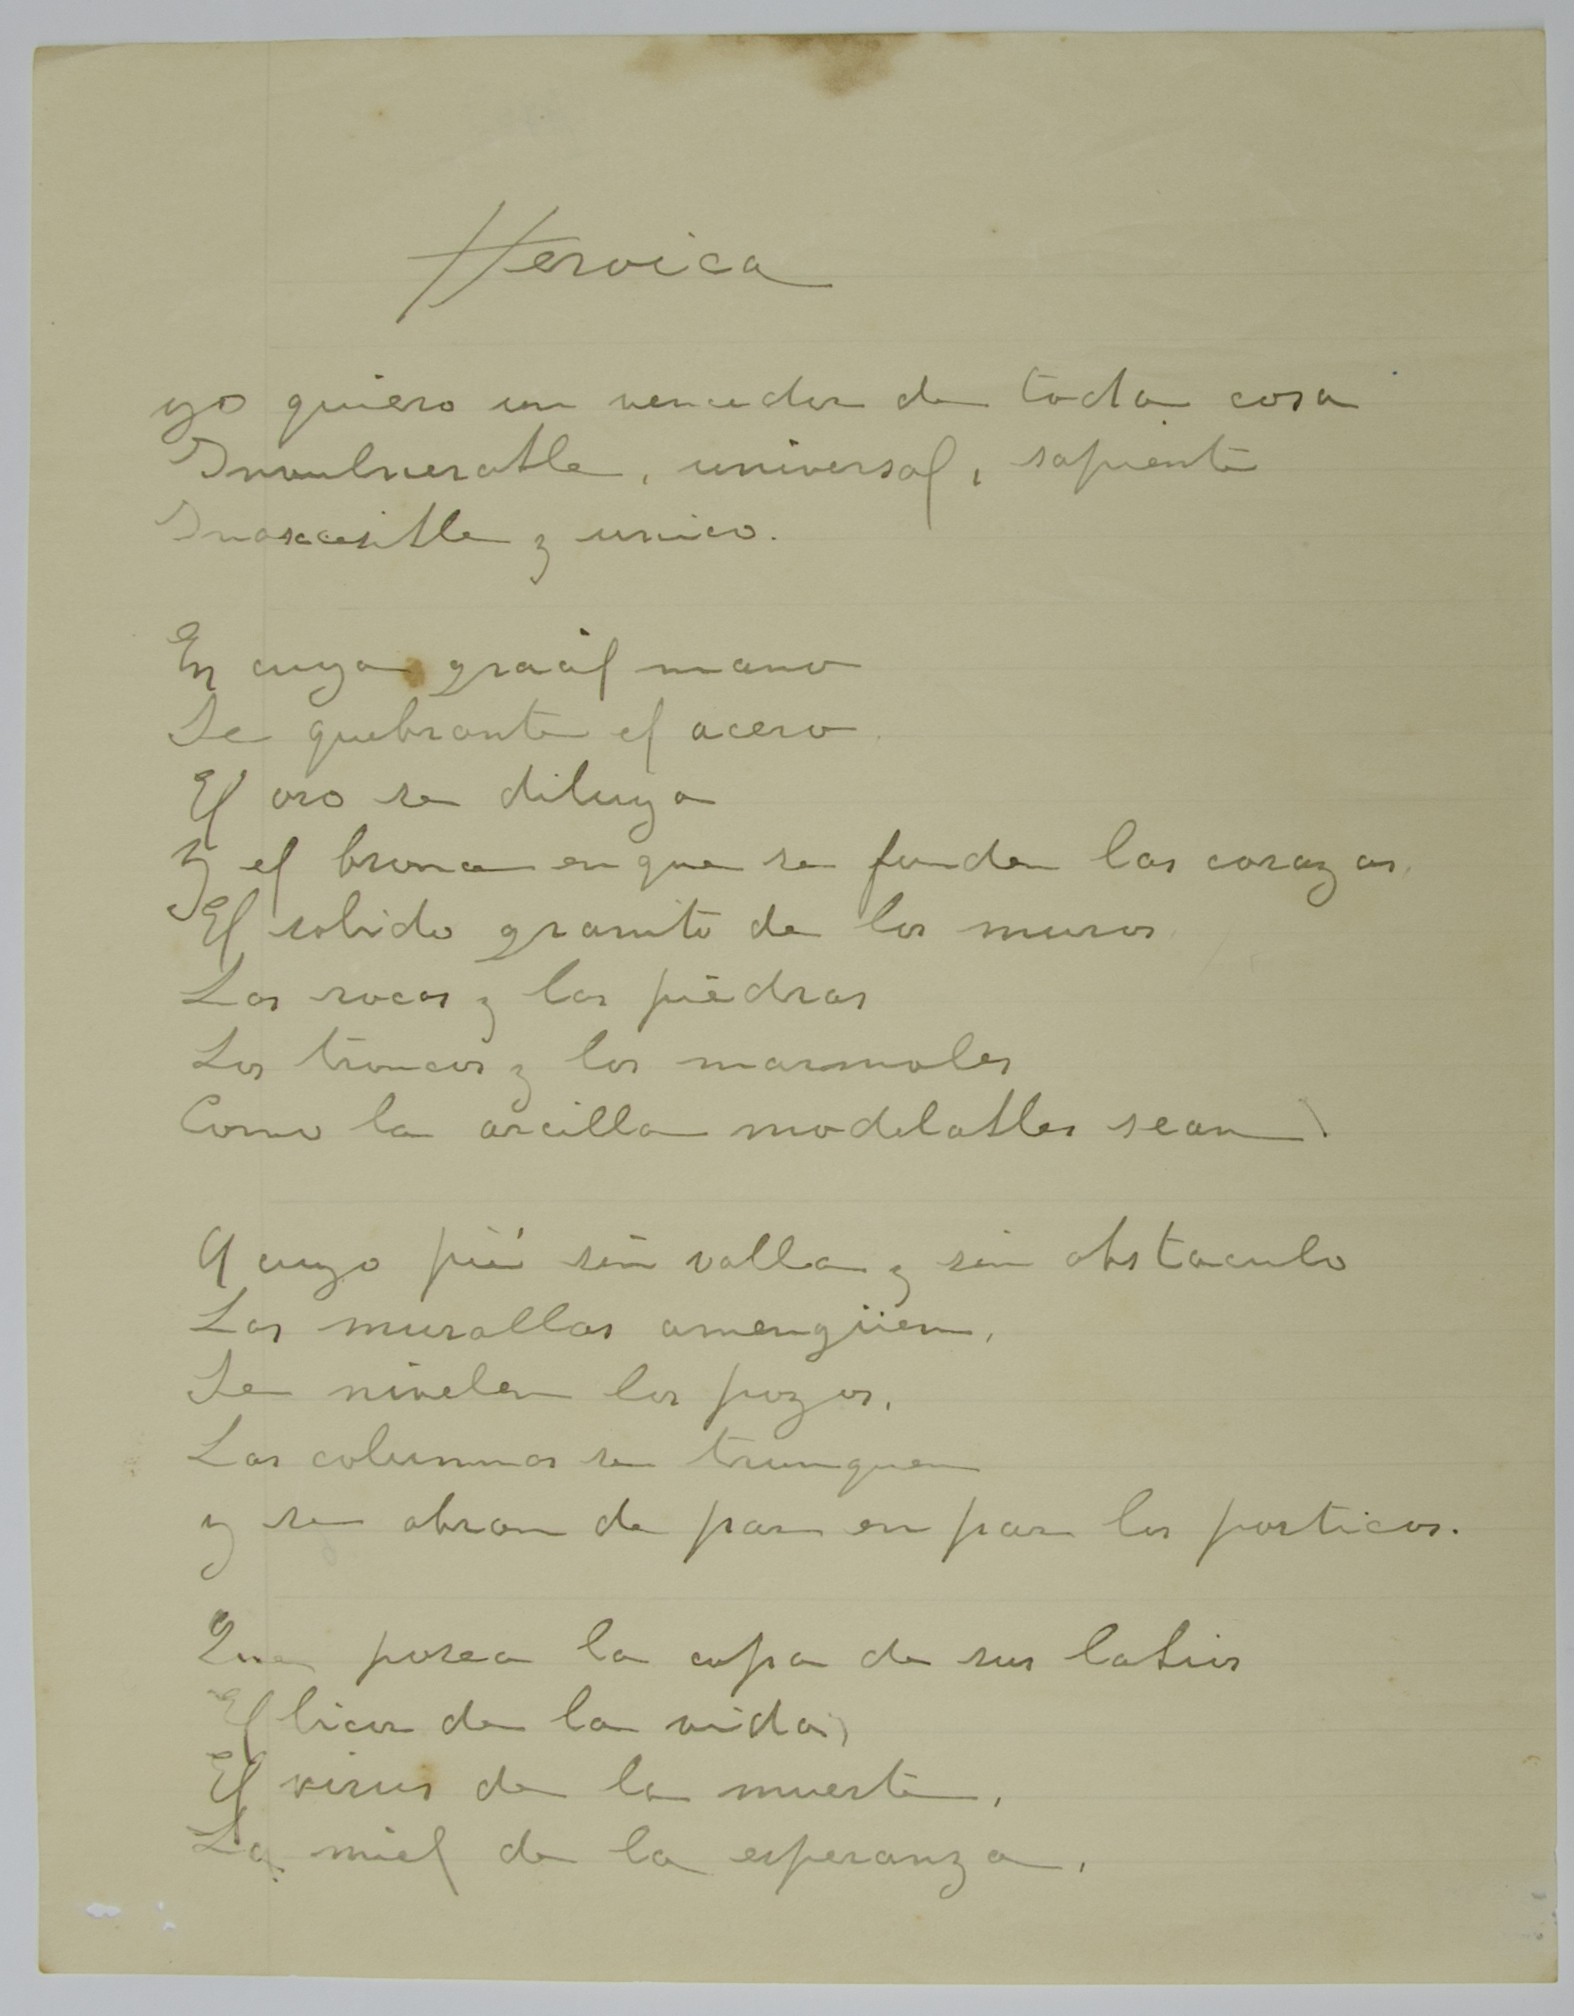 Heroica
yo quiero un vencedor de toda cosa
Invulnerable, universal, sapiente
Inaccesible y unico.
En cuya gracil mano
Se quebrante el acero,
El oro se diluya
Y el bronce en que se funden las corazas,
El solido granito de los muros,
Las rocas y las piedras
Los troncos y los marmoles
Como la arcilla modelables sean.
A cuyo pié sin valla y sin obstaculo
Las murallas amengüen,
Se nivelen los pozos,
Las columnas se trunquen
y se abran de par en par los porticos.
Que posea la copa de sus labios
El licor de la vida,
El virus de la muerte,
La miel de la esperanza,